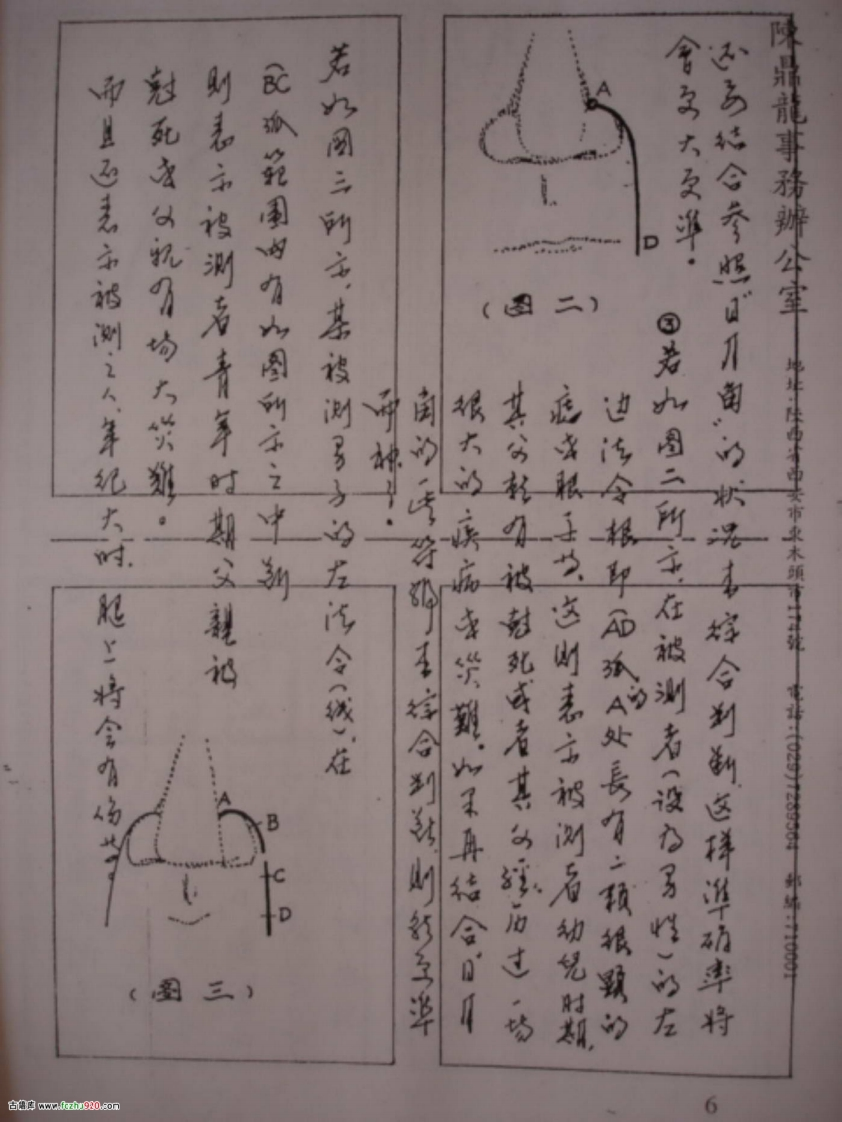 陳鼎龍事務辦公室 地址:陕西省西安市東木頭市172號 電話:(029)7289564 郵編:710001
还要结合参照"日月角"的状况来综合判断,这样準确率将
會更大更準。
③若如图二所示,在被测者(设为男性)的左
边法令根即(AD弧的A处長有一颗很顯的
痣或眼子等,这则表示被测者幼儿时期,
其父就有被尅死或者其父经历过一场
很大的疾病或災難。如果再结合日月
角的一些符號来综合判断,则就更準
而神了。
A
D
(图二)
若如图三所示,某被测男子的左法令(线),在
(BC弧範圍内有如图所示之中断
则表示被测者青年时期父親被
尅死或父親有场大災難。
而且还表示被测之人,年纪大时,腿上将会有伤等
A
B
C
D
(图三)
6
古籍库 www.fczhu920.com